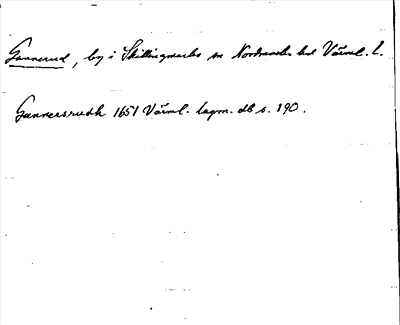 Gunnerud, by i Skillingmarks sn Nordmarks hd Värml. l.
Gunnersrudh 1651 Värml. lagm. db s. 190.